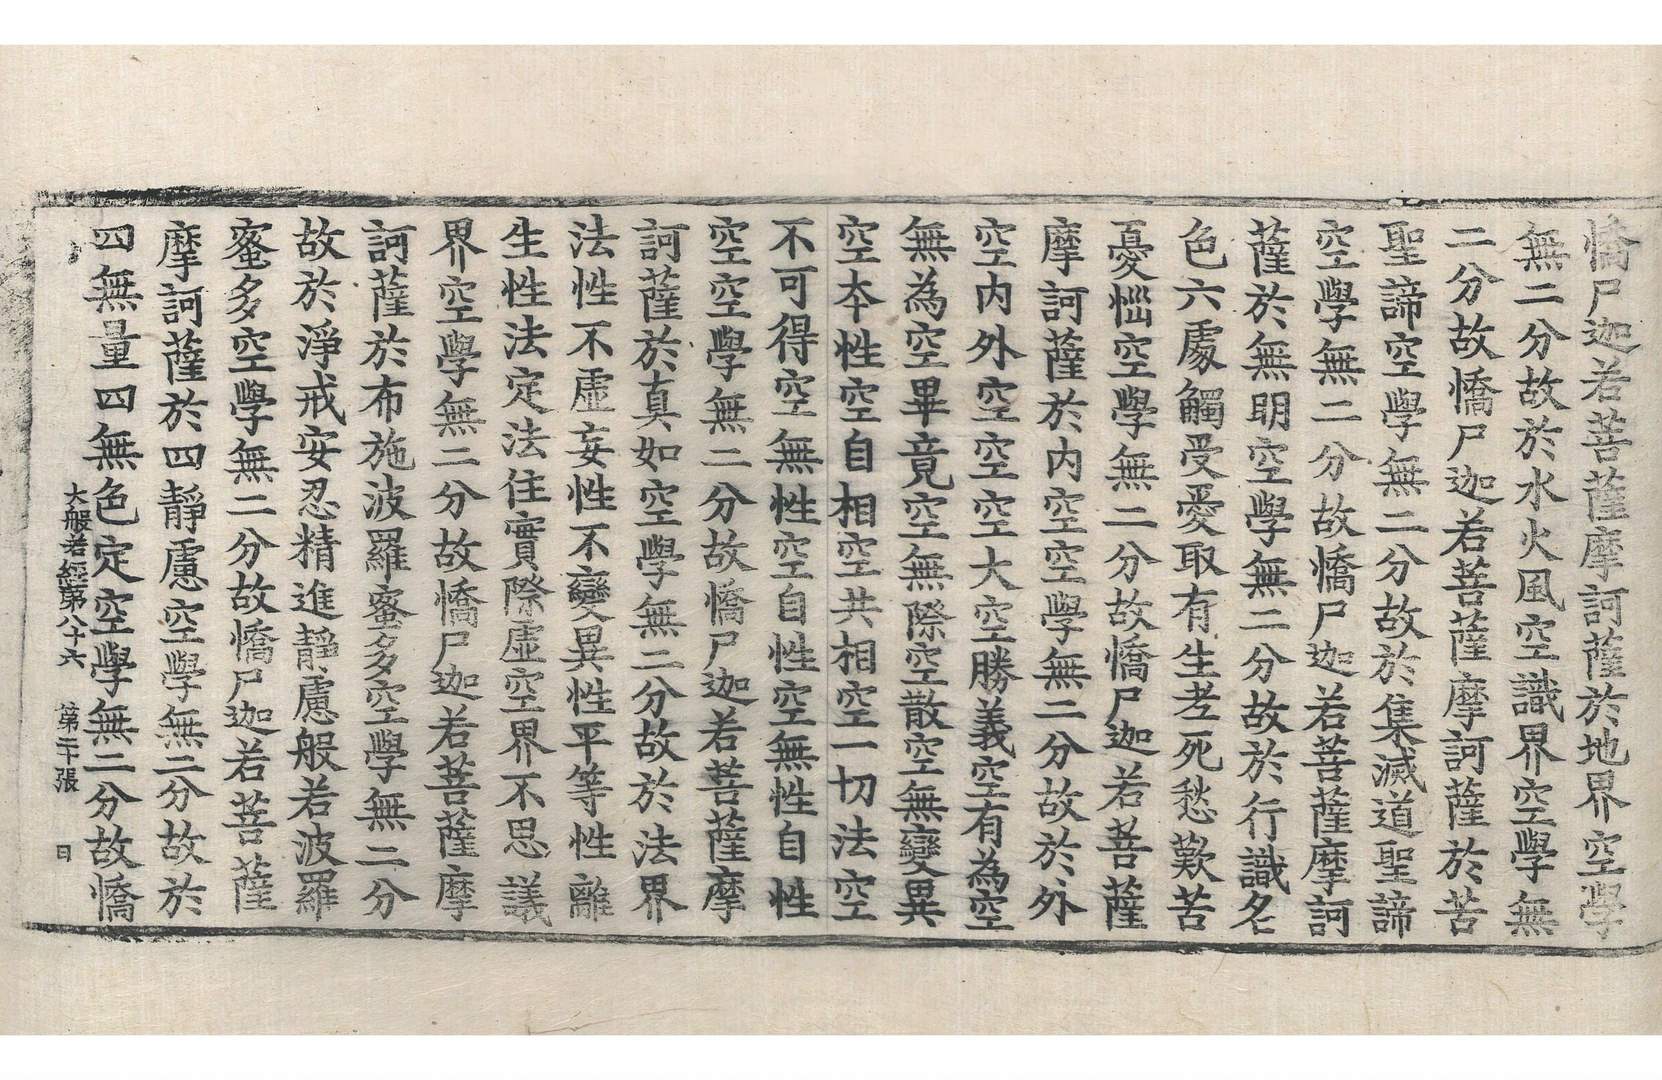 憍尸迦若菩薩摩訶薩於地界空學
無二分故於水火風空識界空學無
二分故憍尸迦若菩薩摩訶薩於苦
聖諦空學無二分故於集滅道聖諦
空學無二分故憍尸迦若菩薩摩訶
薩於無明空學無二分故於行識名
色六處觸受愛取有生老死愁歎苦
憂惱空學無二分故憍尸迦若菩薩
摩訶薩於內空空學無二分故於外
空內外空空空大空勝義空有為空
無為空畢竟空無際空散空無變異
空本性空自相空共相空一切法空
不可得空無性空自性空無性自性
空空學無二分故憍尸迦若菩薩摩
訶薩於真如空學無二分故於法界
法性不虛妄性不變異性平等性離
生性法定法住實際虛空界不思議
界空學無二分故憍尸迦若菩薩摩
訶薩於布施波羅蜜多空學無二分
故於淨戒安忍精進靜慮般若波羅
蜜多空學無二分故憍尸迦若菩薩
摩訶薩於四靜慮空學無二分故於
四無量四無色定空學無二分故憍
大般若經第八十六 第二十張 日